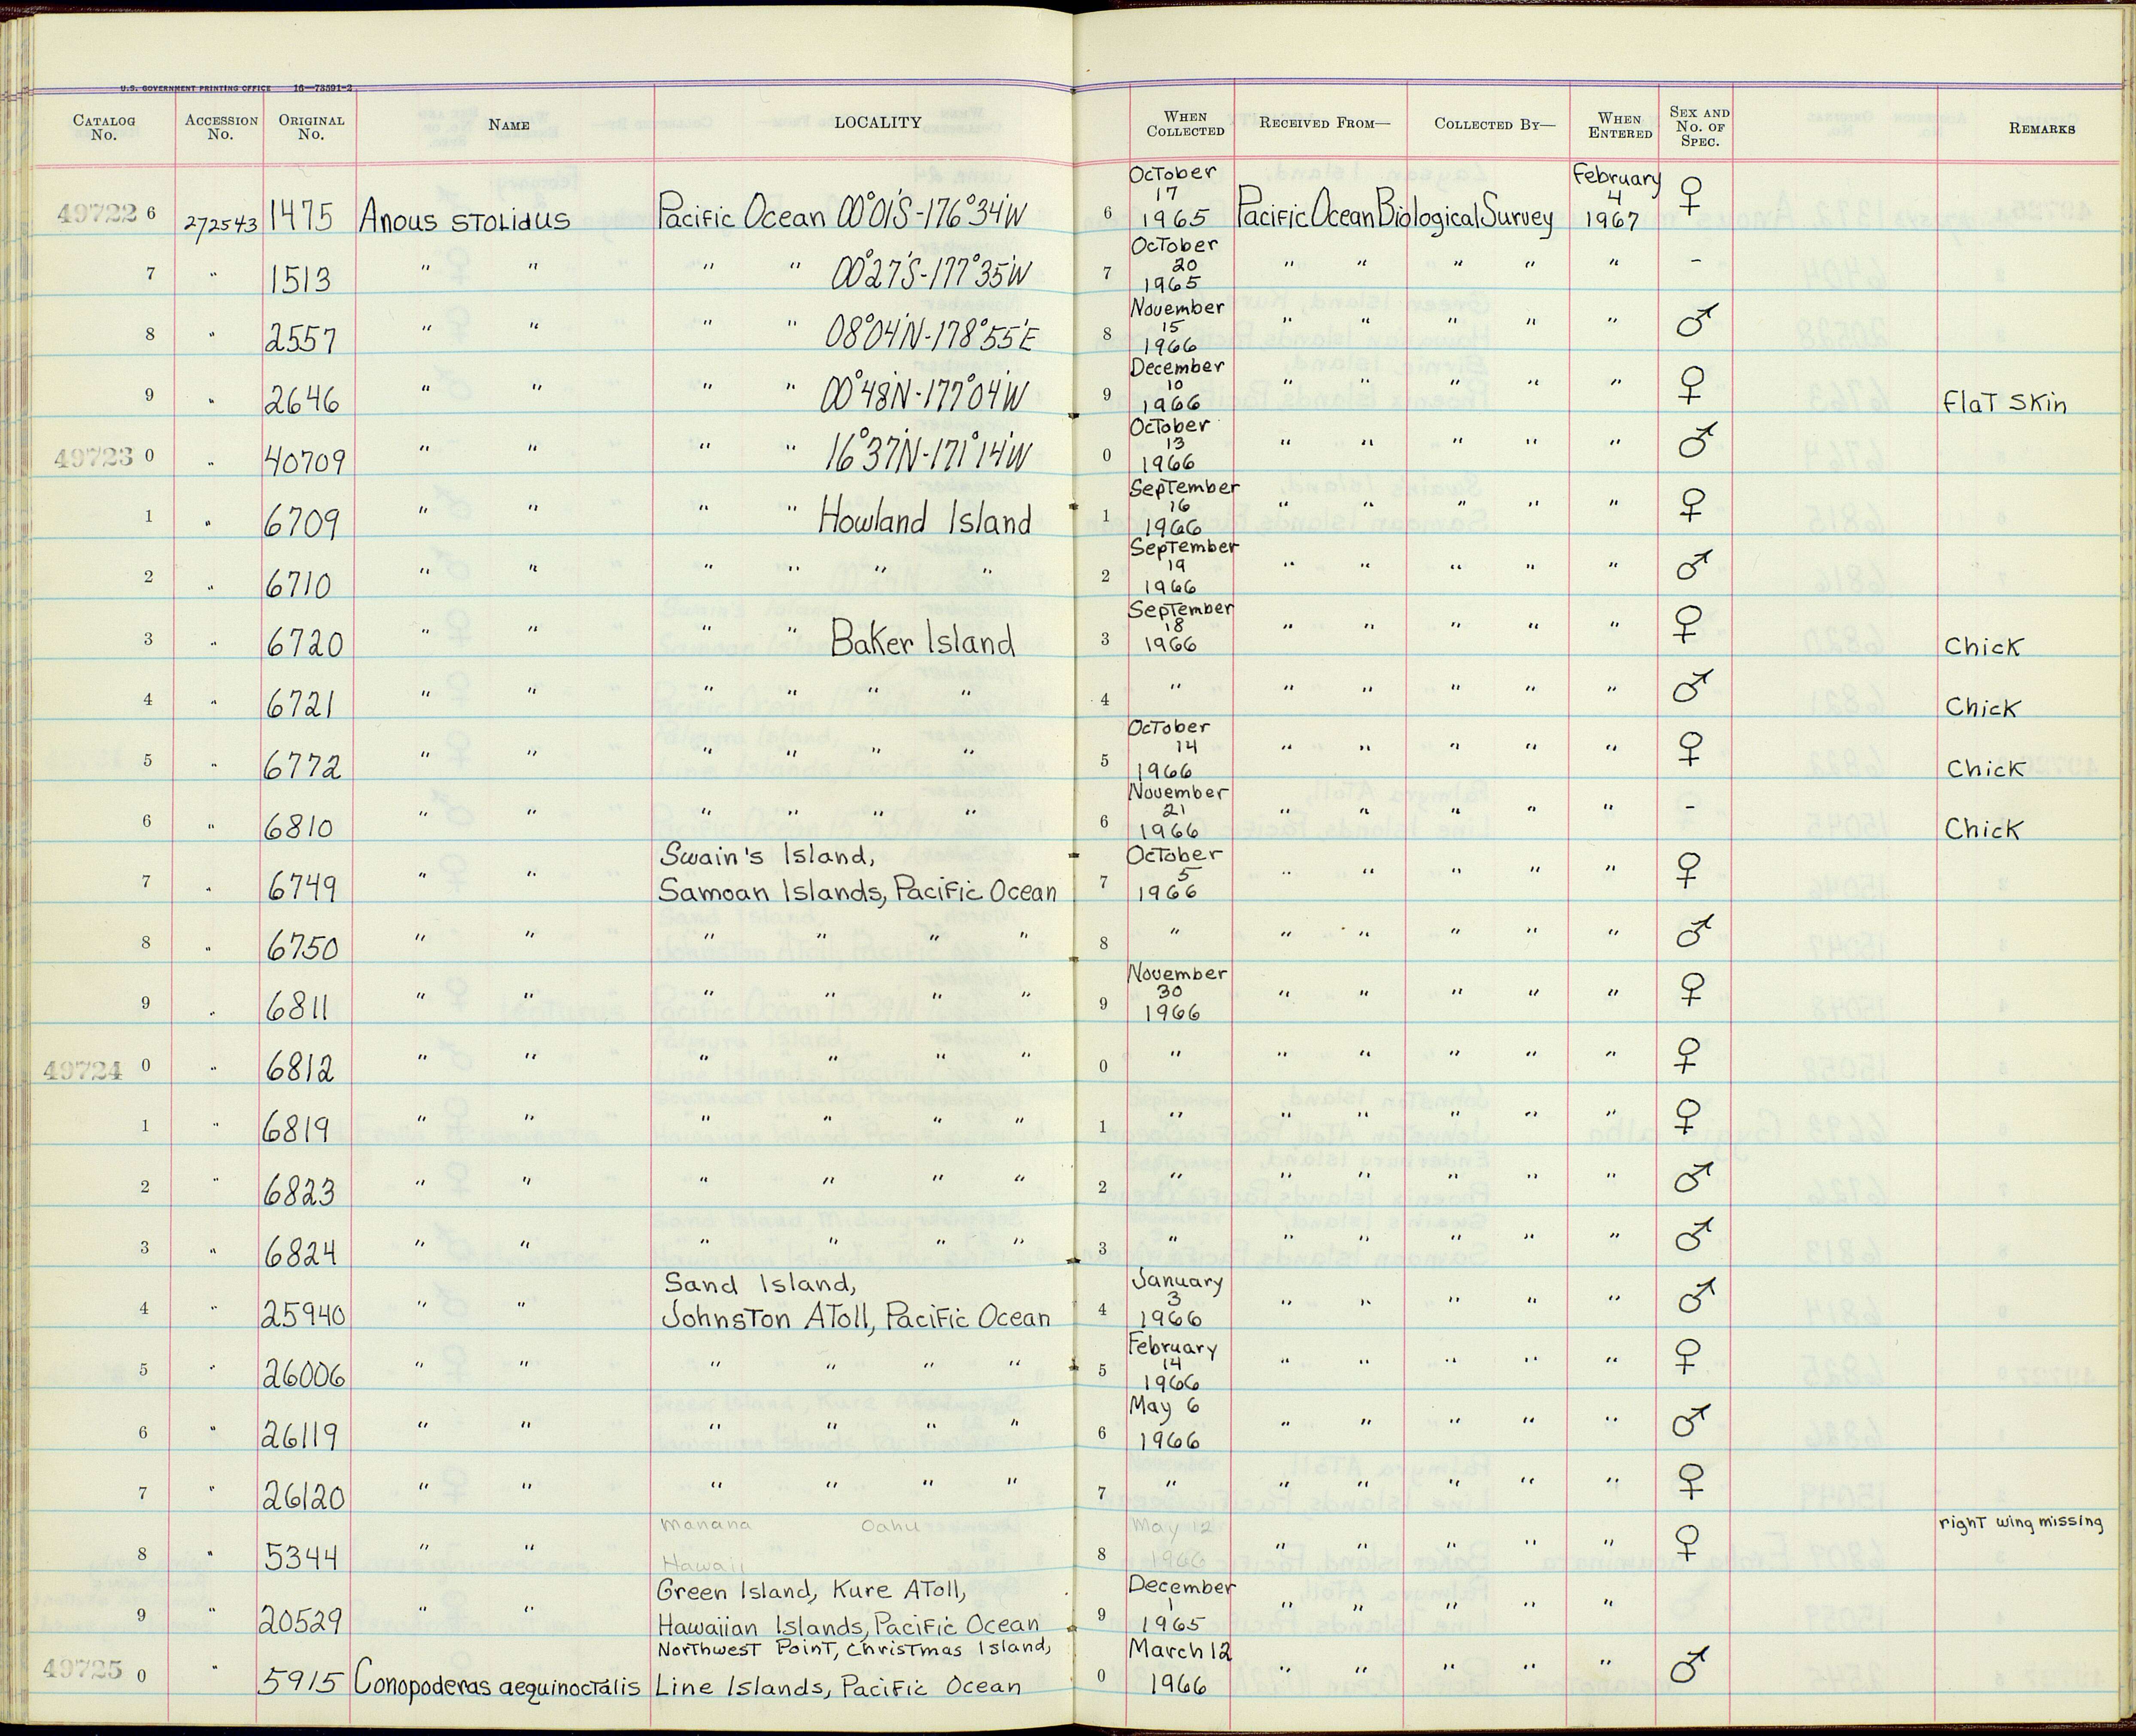 U.S. GOVERNMENT PRINTING OFFICE 16—73591-2
CATALOG No. ACCESSION No. ORIGINAL No. NAME LOCALITY WHEN COLLECTED RECEIVED FROM— COLLECTED BY— WHEN ENTERED SEX AND No. OF SPEC. REMARKS
49722 6 272543 1475 Anous stolidus Pacific Ocean 00°01'S-176°34'W 6 October 17 1965 Pacific Ocean Biological Survey February 4 1967 ♀
7 " 1513 " " " " 00°27'S-177°35'W 7 October 20 1965 " " " " " -
8 " 2557 " " " " 08°04'N-178°55'E 8 November 15 1966 " " " " " ♂
9 " 2646 " " " " 00°48'N-177°04'W 9 December 10 1966 " " " " " ♀ Flat Skin
49723 0 " 40709 " " " " 16°37'N-171°14'W 0 October 13 1966 " " " " " ♂
1 " 6709 " " " " Howland Island 1 September 16 1966 " " " " " ♀
2 " 6710 " " " " " " 2 September 19 1966 " " " " " ♂
3 " 6720 " " " " Baker Island 3 September 18 1966 " " " " " ♀ Chick
4 " 6721 " " " " " " 4 " " " " " " ♂ Chick
5 " 6772 " " " " " " 5 October 14 1966 " " " " " ♀ Chick
6 " 6810 " " " " " " 6 November 21 1966 " " " " " - Chick
7 " 6749 " " Swain's Island, Samoan Islands, Pacific Ocean 7 October 5 1966 " " " " " ♀
8 " 6750 " " " " " " 8 " " " " " " ♂
9 " 6811 " " " " " " 9 November 30 1966 " " " " " ♀
49724 0 " 6812 " " " " " " 0 " " " " " " ♀
1 " 6819 " " " " " " 1 " " " " " " ♀
2 " 6823 " " " " " " 2 " " " " " " ♂
3 " 6824 " " " " " " 3 " " " " " " ♂
4 " 25940 " " Sand Island, Johnston Atoll, Pacific Ocean 4 January 3 1966 " " " " " ♂
5 " 26006 " " " " " " 5 February 14 1966 " " " " " ♀
6 " 26119 " " " " " " 6 May 6 1966 " " " " " ♂
7 " 26120 " " " " " " 7 " " " " " " ♀
8 " 5344 " " Manana Oahu Hawaii 8 May 12 1966 " " " " " ♀ right wing missing
9 " 20529 " " Green Island, Kure Atoll, Hawaiian Islands, Pacific Ocean 9 December 1 1965 " " " " "
49725 0 " 5915 Conopoderas aequinoctalis Northwest Point, Christmas Island, Line Islands, Pacific Ocean 0 March 12 1966 " " " " " ♂